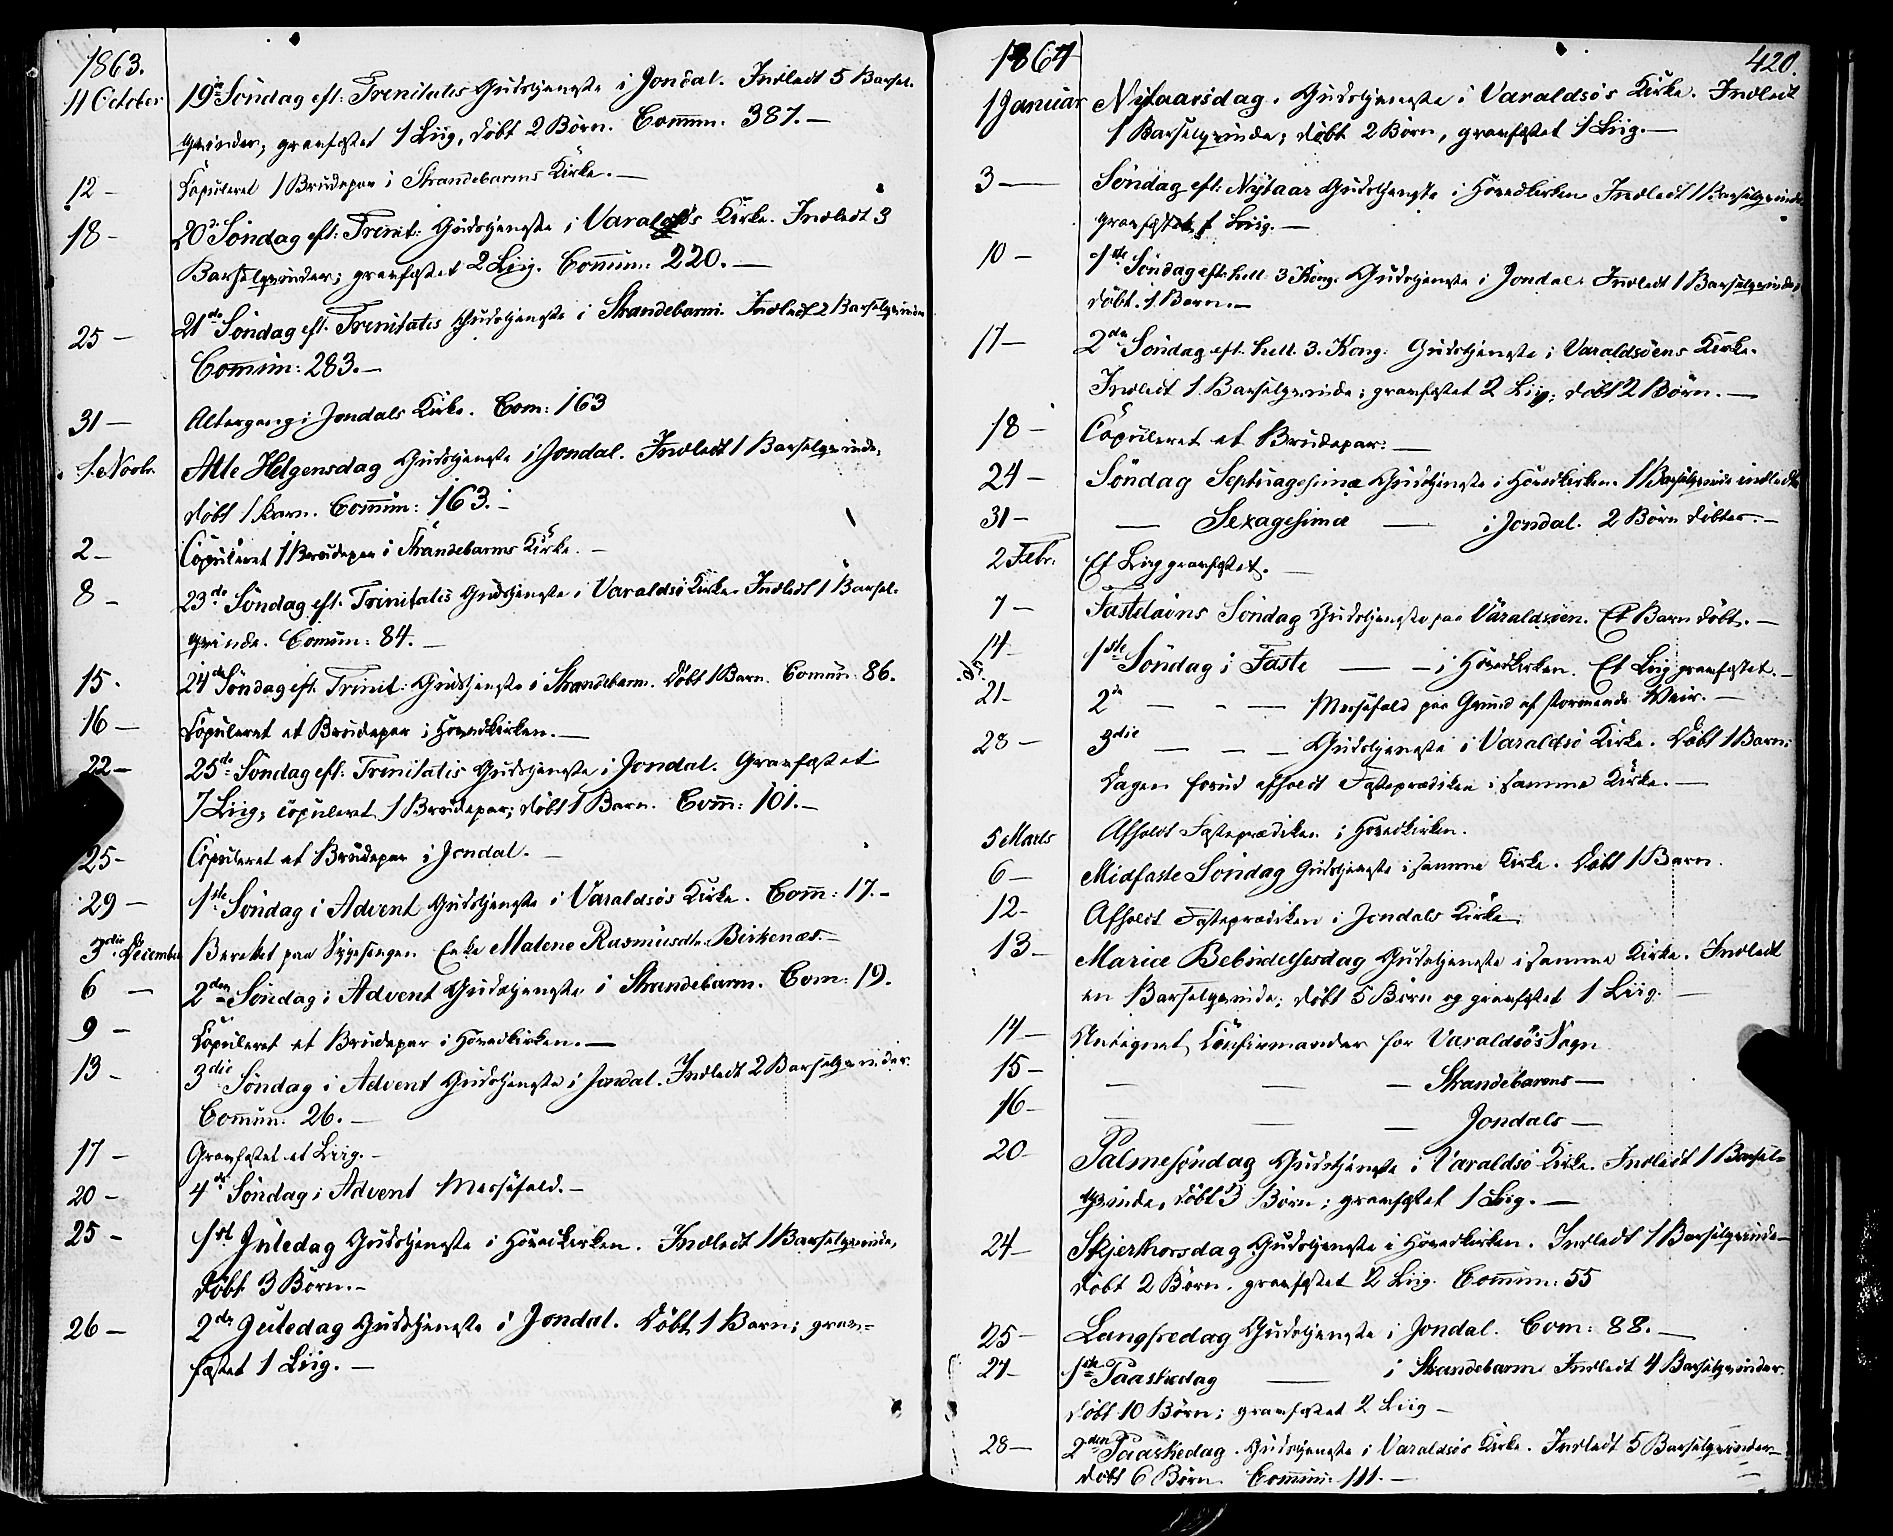 1863.
11 October 19de Søndag eft: Trinitatis Gudstjeneste i Jondal. Indledt 5 Barsel-
qvinder; graafæstet 1 Liig, døbt 2 Børn. Comun. 387.—
12 — Copuleret 1 Brudepar i Strandebarms Kirke.—
18 — 20de Søndag eft: Trinit: Gudstjeneste i Varaldsøs Kirke. Indledt 3
Barselqvinder; graafæstet 2 Liig. Comun: 220.—
25 — 21de Søndag eft. Trinitatis Gudstjeneste i Strandebarm. Indledt 2 Barselqvinder
Comun: 283.—
31 — Altergang i Jondals Kirke. Com: 163
1. Novbr. Alle Helgensdag Gudstjeneste i Jondal. Indledt 1 Barselqvinde,
døbt 1 Barn. Comun: 163.—
2 — Copuleret 1 Brudepar i Strandebarms Kirke.—
8 — 23de Søndag eft. Trinitatis Gudstjeneste i Varaldsø Kirke. Indledt 1 Barsel-
qvinde. Comun: 84.—
15. 24de Søndag eft. Trinit: Gudstjeneste i Strandebarm. Døbt 1 Barn. Comun: 86.
16 — Copuleret et Brudepar i Hovedkirken.—
22 — 25de Søndag eft: Trinitatis Gudstjeneste i Jondal. Graafæstet
7 Liig; copuleret 1 Brudepar; døbt 1 Barn. Com: 101.—
25 — Copuleret et Brudepar i Jondal.—
29 — 1ste Søndag i Advent Gudstjeneste i Varaldsøs Kirke. Com: 17.—
3die December Berettet paa Sygesengen Enke Malene Rasmusdtr. Birkenæs.—
6 — 2den Søndag i Advent Gudstjeneste i Strandebarm. Com: 19.
9 — Copuleret et Brudepar i Hovedkirken.—
13 — 3die Søndag i Advent Gudstjeneste i Jondal. Indledt 2 Barselqvinder.
Comun: 26.—
17 — Graafæstet et Liig.—
20 — 4de Søndag i Advent Messefald.—
25 — 1ste Juledag Gudstjeneste i Hovedkirken. Indledt 1 Barselqvinde,
døbt 3 Børn.—
26 — 2den Juledag Gudstjeneste i Jondal. Døbt 1 Barn; graa-
fæstet 1 Liig.—
1864
420.
1 Januar Nytaarsdag. Gudstjeneste i Varaldsøs Kirke. Indledt
1 Barselqvinde; døbt 2 Børn, graafæstet 1 Liig.—
3 — Søndag eft. Nytaar Gudstjeneste i Hovedkirken Indledt 1 Barselqvinde
graafæstet 1 Liig.—
10 — 1ste Søndag eft. hell. 3 Kong. Gudstjeneste i Jondal. Indledt 1 Barselqvinde,
døbt 1 Barn.—
17 — 2den Søndag eft. hell. 3. Kong: Gudstjeneste i Varaldsøens Kirke.
Indledt 1 Barselqvinde; graafæstet 2 Liig; døbt 2 Børn.—
18 — Copuleret et Brudepar.—
24 — Søndag Septuagesima Gudstjeneste i Hovedkirken. 1 Barselqvinde indledt
31 — — Sexagesima — i Jondal. 2 Børn døbtes.—
2 Febr. Et Liig graafæstet.—
7 — Fastelavns Søndag Gudstjeneste paa Varaldsøen. Et Barn døbt.—
14 — 1ste Søndag i Faste — — i Hovedkirken. Et Liig graafæstet.—
21 — 2den — — — Messefald paa Grund af stormende Veir.—
28 — 3die — — — Gudstjeneste i Varaldsø Kirke. Døbt 1 Barn.
Dagen forud afholdt Fasteprædiken i samme Kirke.—
5 Marts Afholdt Fasteprædiken i Hovedkirken.
6 — Midfaste Søndag Gudstjeneste i samme Kirke. Døbt 1 Barn.
12 — Afholdt Fasteprædiken i Jondals Kirke.
13 — Mariæ Bebudelsesdag Gudstjeneste i samme Kirke. Indledt
en Barselqvinde; døbt 5 Børn og graafæstet 1 Liig.—
14 — Antegnet Confirmander for Varaldsøs Sogn
15 — — — — Strandebarms —
16 — — — — Jondals —
20 Palmesøndag Gudstjeneste i Varaldsø Kirke. Indledt 1 Barsel-
qvinde, døbt 3 Børn; graafæstet 1 Liig.—
24 — Skjerthorsdag Gudstjeneste i Hovedkirken. Indledt 1 Barselqvinde—
døbt 2 Børn, graafæstet 2 Liig. Comun: 55
25 — Langfredag Gudstjeneste i Jondal. Com: 88.—
27 — 1ste Paaskedag — i Strandebarm Indledt 4 Barselqvinder.
døbt 10 Børn; graafæstet 2 Liig —
28 — 2den Paaskedag. Gudstjeneste i Varaldsøs Kirke. Indledt 5 Barselqvinder—
døbt 6 Børn Comun: 111.—